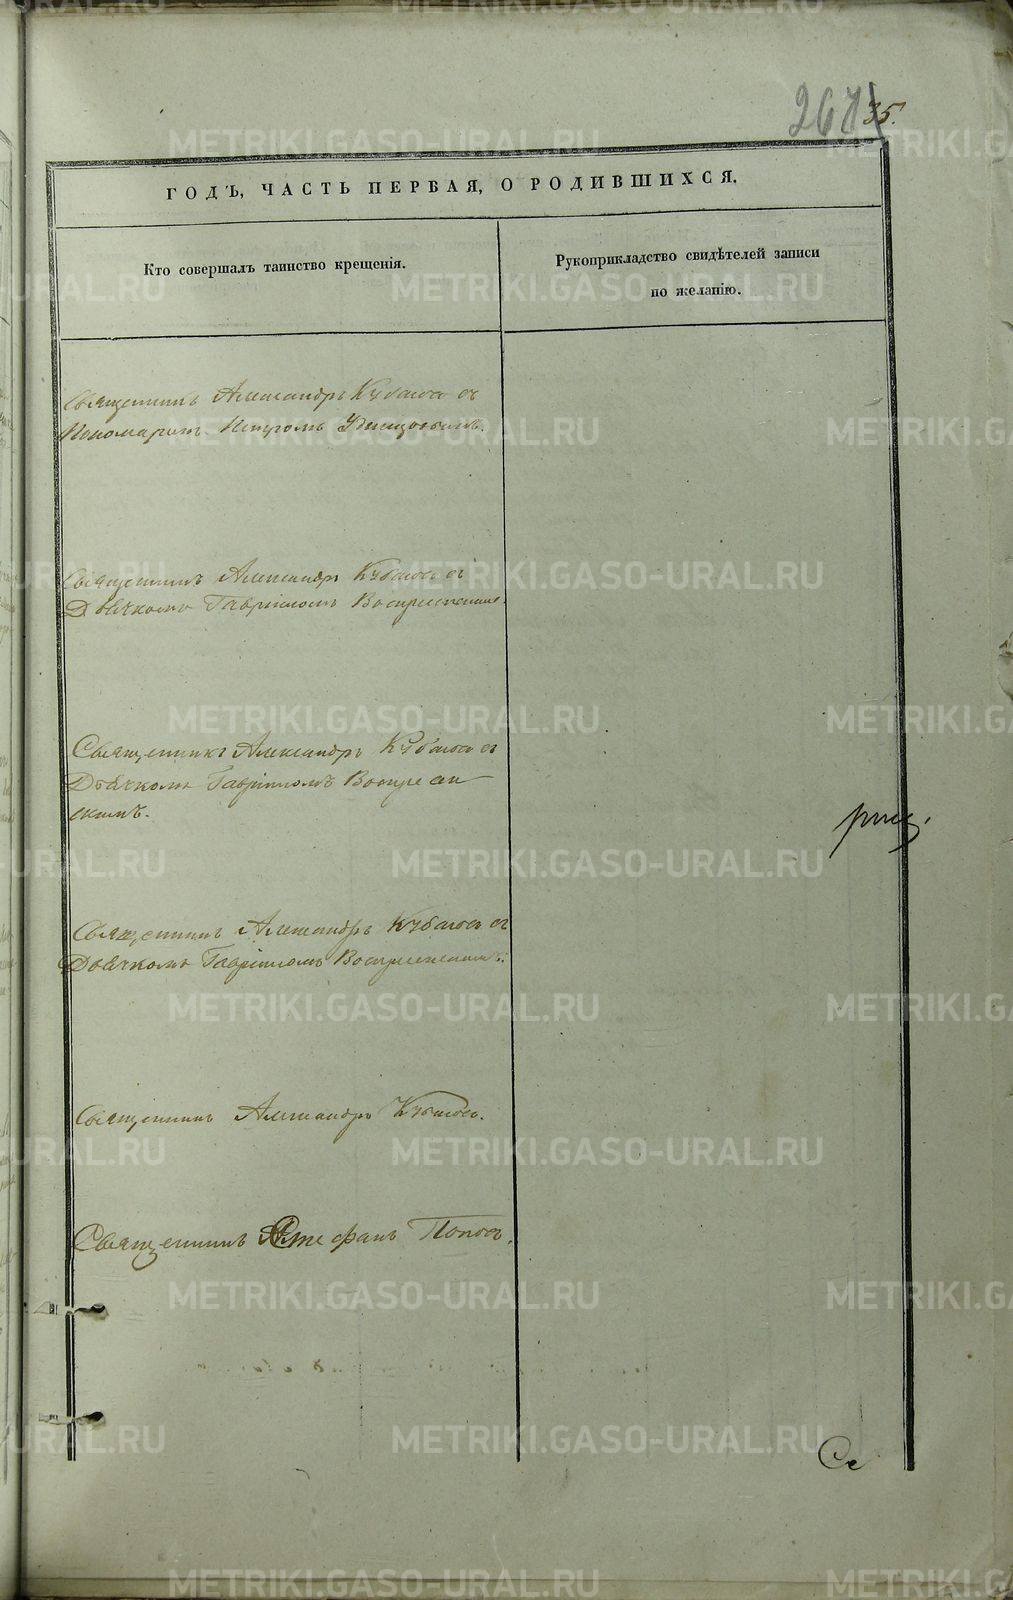 267
35.
ГОДЪ, ЧАСТЬ ПЕРВАЯ, О РОДИВШИХСЯ.
Кто совершалъ таинство крещенія.
Рукоприкладство свидѣтелей записи
по желанію.
Священникъ Александръ Кубасовъ съ
Пономаремъ Петромъ Удинцовымъ.
Священникъ Александръ Кубасовъ съ
Дьячкомъ Гавріиломъ Воскресенским
Священникъ Александръ Кубасовъ съ
Дьячкомъ Гавріиломъ Воскресен
скимъ.
Священникъ Александръ Кубасовъ съ
Дьячкомъ Гавріиломъ Воскресенскимъ.
Священникъ Александръ Кубасовъ.
Священникъ Стефанъ Поповъ.
Се
METRIKI.GASO-URAL.RU